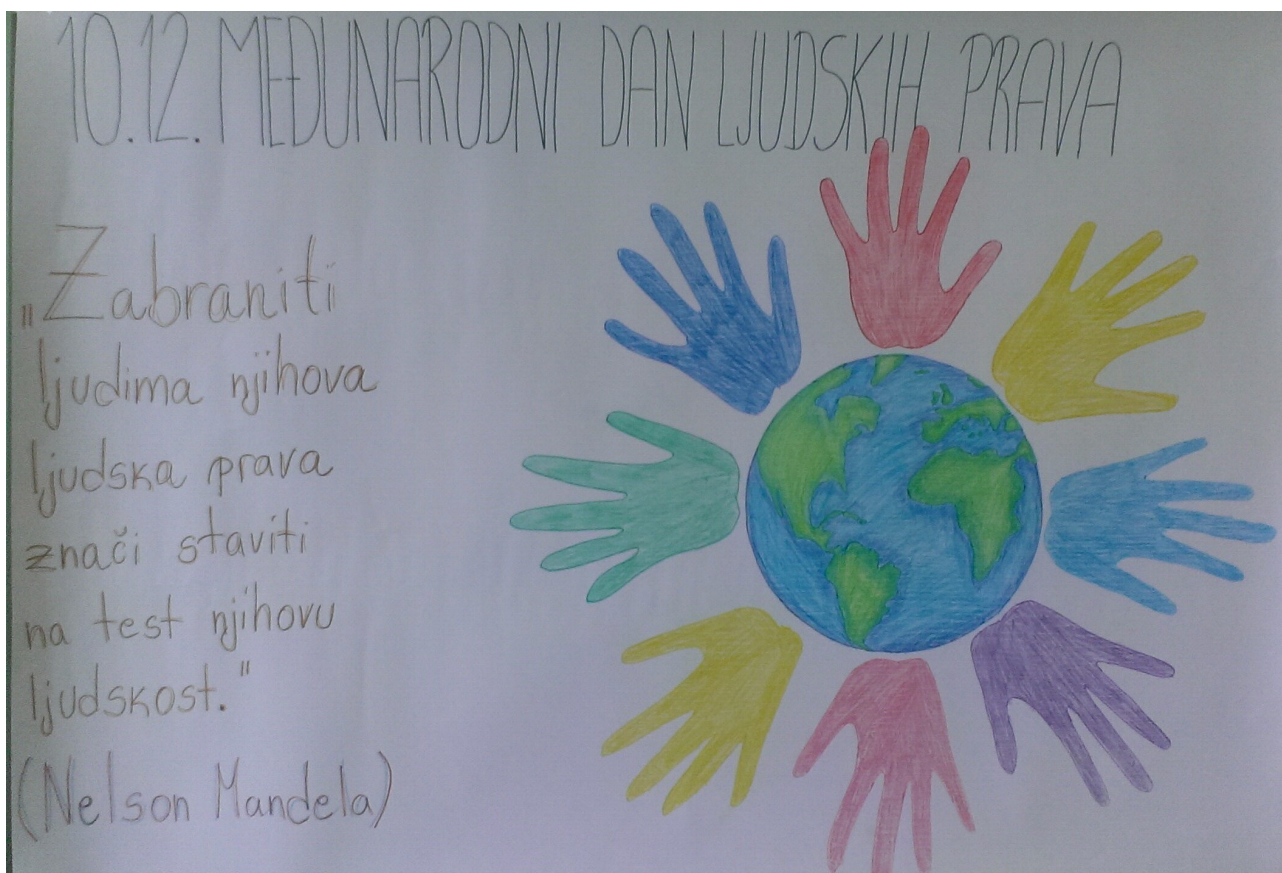 10.12. MEĐUNARODNI DAN LJUDSKIH PRAVA
„Zabraniti
ljudima njihova
ljudska prava
znači staviti
na test njihovu
ljudskost."
(Nelson Mandela)